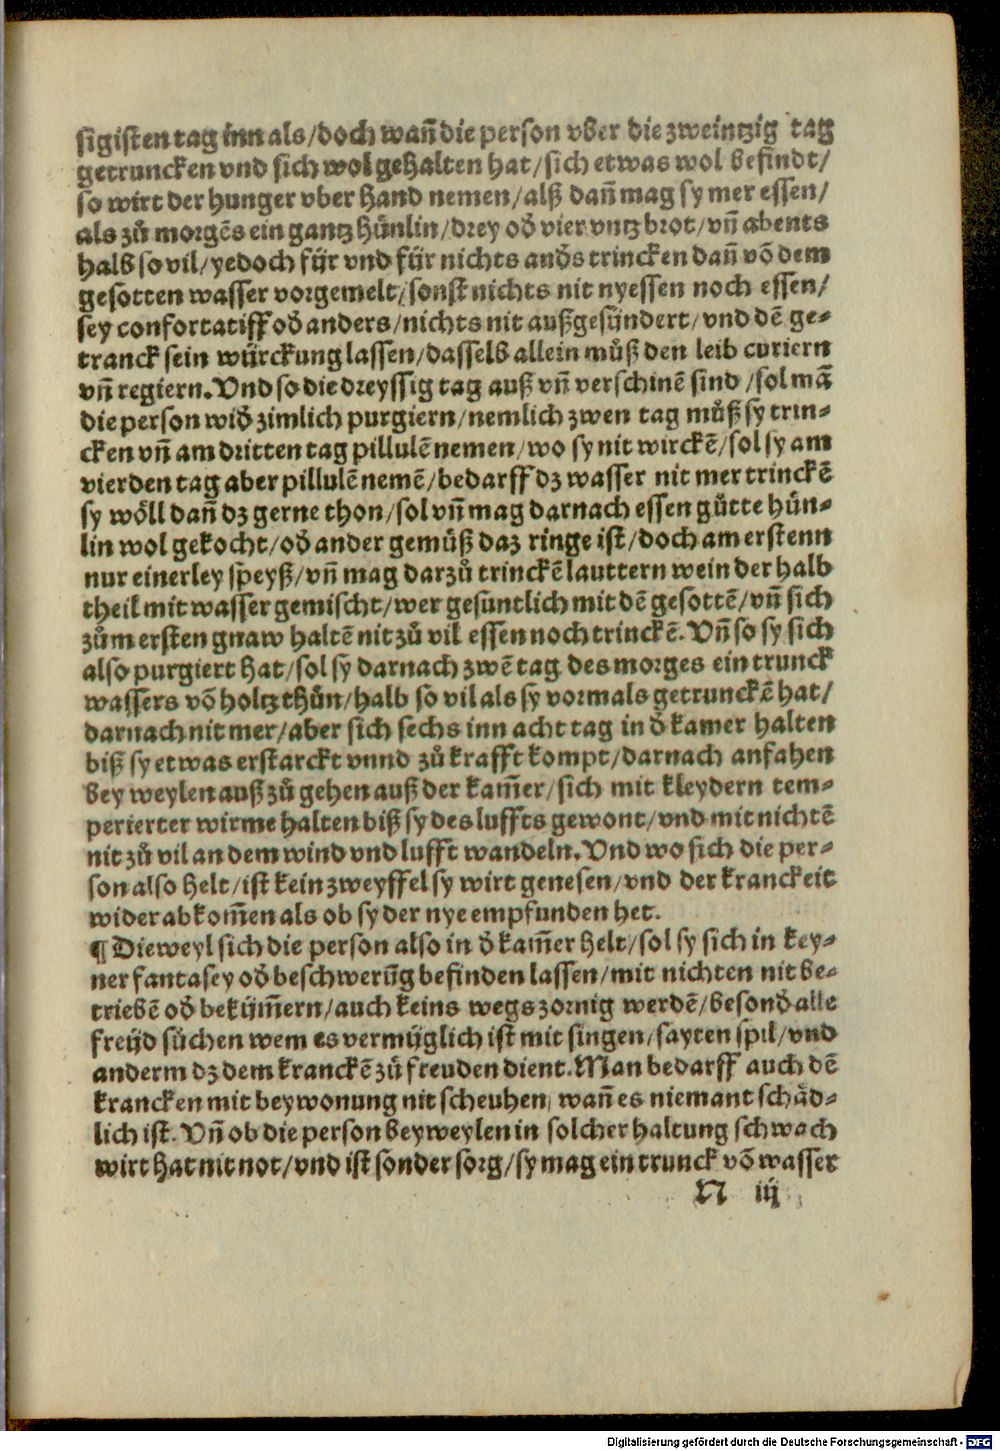 sigisten tag inn als/doch wañ die person vber die zweintzig tag
getruncken vnd sich wol gehalten hat/sich etwas wol befindt/
so wirt der hunger vber hand nemen/alß dañ mag sy mer essen/
als zů morgẽs ein gantz hůnlin/drey oď vier vntz brot/vñ abents
halb so vil/yedoch für vnd für nichts anďs trincken dañ võ dem
gesotten wasser vorgemelt/sonst nichts nit nyessen noch essen/
sey confortatiff oď anders/nichts nit außgesündert/vnd dẽ ge-
tranck sein würckung lassen/dasselb allein můß den leib curiern
vñ regiern. Vnd so die dreyssig tag auß vñ verschinẽ sind/sol mã
die person wiď zimlich purgiern/nemlich zwen tag můß sy trin-
cken vñ am dritten tag pillulẽ nemen/wo sy nit wirckẽ/sol sy am
vierden tag aber pillulẽ nemẽ/bedarff dz wasser nit mer trinckẽ
sy wöll dañ dz gerne thon/sol vñ mag darnach essen gůtte hůn-
lin wol gekocht/oď ander gemůß daz ringe ist/doch am erstenn
nur einerley speyß/vñ mag darzů trinckẽ lauttern wein der halb
theil mit wasser gemischt/wer gesuntlich mit dẽ gesottẽ/vñ sich
zům ersten gnaw haltẽ nit zů vil essen noch trinckẽ. Vñ so sy sich
also purgiert hat/sol sy darnach zwẽ tag des morges ein trunck
wassers võ holtz thůn/halb so vil als sy vormals getrunckẽ hat/
darnach nit mer/aber sich sechs inn acht tag in ď kamer halten
biß sy etwas erstarckt vnnd zů krafft kompt/darnach anfahen
bey weylen auß zů gehen auß der kam̃er/sich mit kleydern tem-
perierter wirme halten biß sy des luffts gewont/vnd mit nichtẽ
nit zů vil an dem wind vnd lufft wandeln. Vnd wo sich die per-
son also helt/ist kein zweyffel sy wirt genesen/vnd der kranckeit
wider abkom̃en als ob sy der nye empfunden het.
¶ Dieweyl sich die person also in ď kam̃er helt/sol sy sich in key-
ner fantasey oď beschwerũg befinden lassen/mit nichten nit be-
triebẽ oď bekům̃ern/auch keins wegs zornig werdẽ/besonď alle
freüd sůchen wem es vermüglich ist mit singen/sayten spil/vnd
anderm dz dem kranckẽ zů freuden dient. Man bedarff auch dẽ
krancken mit beywonung nit scheuhen/wañ es niemant schäd-
lich ist. Vñ ob die person beyweylen in solcher haltung schwach
wirt hat nit not/vnd ist sonder sorg/sy mag ein trunck võ wasser
N iij
Digitalisierung gefördert durch die Deutsche Forschungsgemeinschaft - DFG